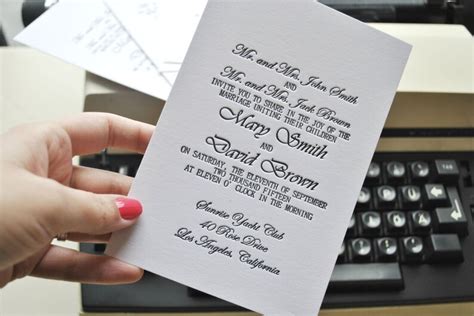 Mr. and Mrs. John Smith
AND
Mr. and Mrs. Jack Brown
INVITE YOU TO SHARE IN THE JOY OF THE
MARRIAGE UNITING THEIR CHILDREN
Mary Smith
AND
David Brown
ON SATURDAY, THE ELEVENTH OF SEPTEMBER
TWO THOUSAND FIFTEEN
AT ELEVEN O' CLOCK IN THE MORNING
Sunrise Yacht Club
40 Rose Drive
Los Angeles, California